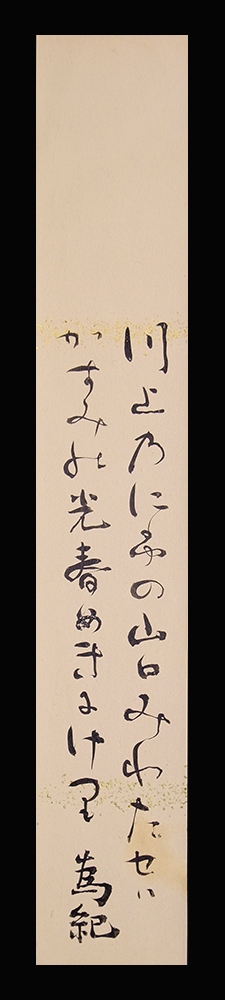 川上乃にふの山口みわたせハ
かすみ能光春めきにけり 為紀